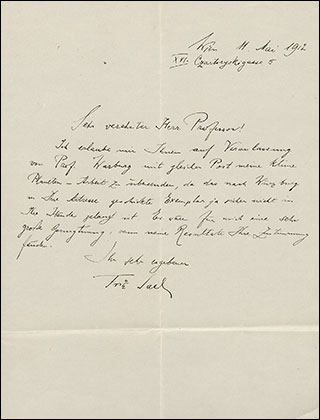 Wien 11. Mai 1912
XVI. Czartoryskigasse 5
Sehr verehrter Herr Professor!
Ich erlaube mir Ihnen auf Veranlassung
von Prof. Warburg mit gleicher Post meine kleine
Planeten-Arbeit zu übersenden, da das nach Würzburg
an Ihre Adresse geschickte Exemplar ja leider nicht in
Ihre Hände gelangt ist. Es wäre für mich eine sehr
große Genugtuung, wenn meine Resultate Ihre Zustimmung
fänden.
Ihr sehr ergebener
Fritz Saxl